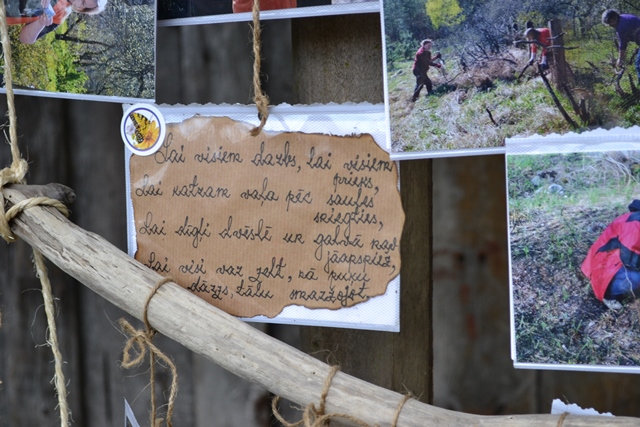 Lai visiem darbs, lai visiem
prieks,
Lai katram vaļa pēc saules
sniegties,
Lai dīgļi dvēslē un galvā nav
jāapspiež,
Lai visi var zelt, kā puķu
dārzs, tālu smaržojot.